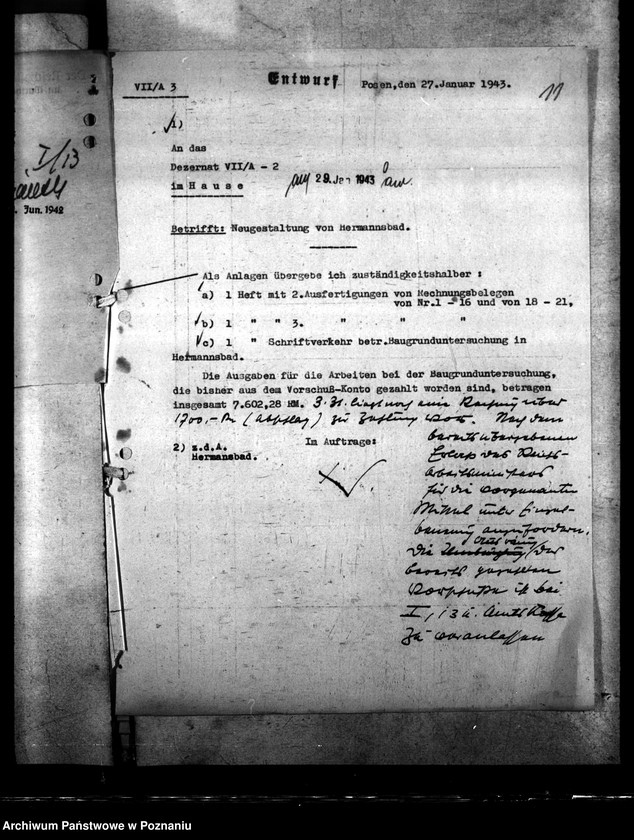 VII/A 3
Entwurf
Posen, den 27. Januar 1943.
11
1)
An das
Dezernat VII/A - 2
im Hause
29. Jan 1943
Betrifft: Neugestaltung von Hermannsbad.
Als Anlagen übergebe ich zuständigkeitshalber :
a) 1 Heft mit 2.Ausfertigungen von Rechnungsbelegen
von Nr.1 - 16 und von 18 - 21,
b) 1 " " 3. " " "
c) 1 " Schriftverkehr betr.Baugrunduntersuchung in
Hermannsbad.
Die Ausgaben für die Arbeiten bei der Baugrunduntersuchung,
die bisher aus dem Vorschuß-Konto gezahlt worden sind, betragen
insgesamt 7.602,28 RM. Z. Zt. liegt noch eine Rechnung über
1700,- RM (Abschlag) zur Zahlung vor. Nach dem
bereits übergebenen
Erlass des Reichs-
arbeitsministers
für die
Mittel unter
anzufordern.
Die der
bereits
Vorschüsse ist bei
I/13 u. Amtskasse
zu veranlassen
Im Auftrage:
2) z.d.A.
Hermannsbad.
I/13
. Jun. 1942
Archiwum Państwowe w Poznaniu